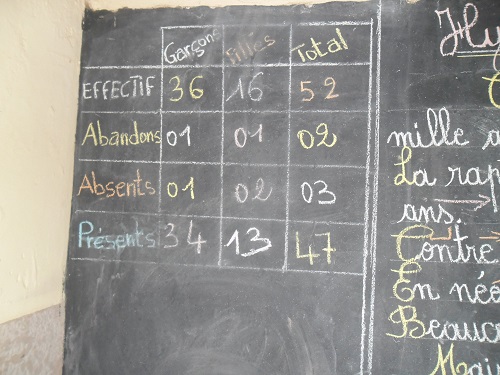 Garçons Filles Total
EFFECTIF 36 16 52
Abandons 01 01 02
Absents 01 02 03
Présents 34 13 47
Hy
mille a
La rap
ans.
Contre
En néo
Beauco
Mai